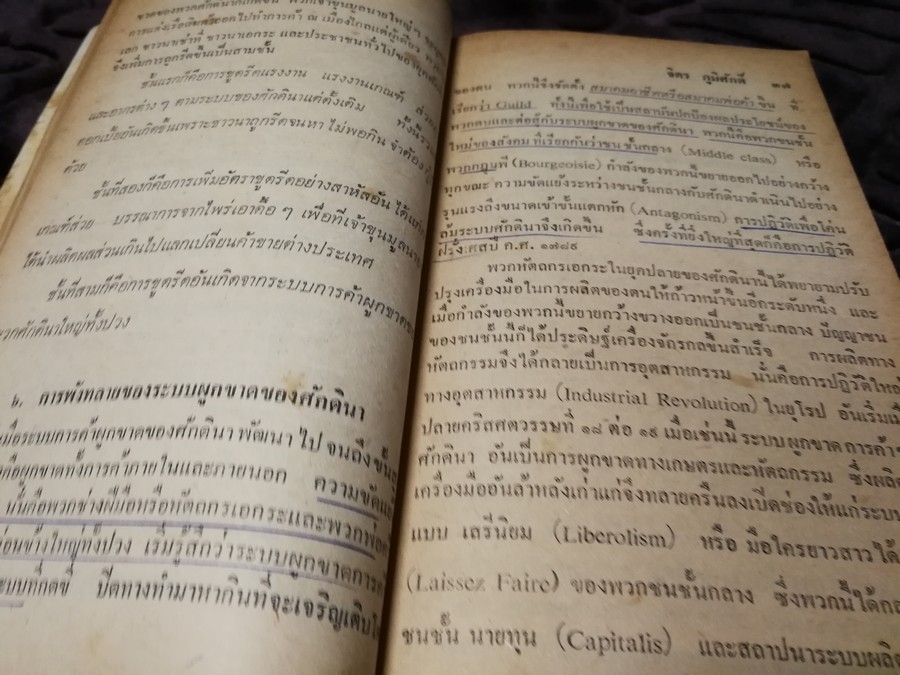 ขาดของพวกศักดินาก็เกิดขึ้น พวกเจ้าขุนมูลนายใหญ่ๆ
การแต่งเรือสินค้าออกไปทำการค้า ณ เมืองไกลแต่ผู้เดียว
เลก ชาวนาเช่าที่ ชาวนาเอกระ และประชาชนทั่วไปของยุคศักดิ
จึงเพิ่มการถูกรีดขึ้นเป็นสามชั้น
ชั้นแรกก็คือการขูดรีดแรงงาน แรงงานเกณฑ์ ส่วย
และอากรต่าง ๆ ตามระบบของศักดินาแต่ดั้งเดิม ทั้งนี้รวม
ดอกเบี้ยอันเกิดขึ้นเพราะชาวนาถูกรีดจนหา ไม่พอกิน จำต้อง
ด้วย
ชั้นที่สองก็คือการเพิ่มอัตราขูดรีดอย่างสาหัสอัน ได้แก่
เกณฑ์ส่วย บรรณาการจากไพร่เอาดื้อ ๆ เพื่อที่เจ้าขุนมูลนาย
ได้นำผลิตผลส่วนเกินไปแลกเปลี่ยนค้าขายต่างประเทศ
ชั้นที่สามก็คือการขูดรีดอันเกิดจากระบบการค้าผูกขาดของ
พวกศักดินาใหญ่ทั้งปวง
๖. การพังทลายของระบบผูกขาดของศักดินา
เมื่อระบบการค้าผูกขาดของศักดินา พัฒนา ไป จนถึงขั้น
คือผูกขาดทั้งการค้าภายในและภายนอก ความขัดแย้ง
นั่นคือพวกช่างฝีมือหรือหัตถกรเอกระและพวกพ่อค้า
ค่อนข้างใหญ่ทั้งปวง เริ่มรู้สึกว่าระบบผูกขาดการค้า
ระบบที่กดขี่ ปิดทางทำมาหากินที่จะเจริญเติบโต
จิตร ภูมิศักดิ์ ๒๗
ของตน พวกนี้จึงจัดตั้ง สมาคมอาชีพหรือสมาคมพ่อค้า ขึ้น ที่
เรียกว่า Guild ทั้งนี้เพื่อใช้เป็นสถาบันปกป้องผลประโยชน์ของ
พวกตนและต่อสู้กับระบบผูกขาดของศักดินา พวกนี้คือพวกชนชั้น
ใหม่ของสังคม ที่เรียกกันว่าชน ชั้นกลาง (Middle class) หรือ
พวกกฎุมพี (Bourgeoisie) กำลังของพวกนี้ขยายออกไปอย่างกว้าง
ทุกขณะ ความขัดแย้งระหว่างชนชั้นกลางกับศักดินาดำเนินไปอย่าง
รุนแรงถึงขนาดเข้าขั้นแตกหัก (Antagonism) การปฏิวัติเพื่อโค่น
ล้มระบบศักดินาจึงเกิดขึ้น ซึ่งครั้งที่ยิ่งใหญ่ที่สุดก็คือการปฏิวัติ
ฝรั่งเศสปี ค.ศ. ๑๗๘๙
พวกหัตถกรเอกระในยุคปลายของศักดินานี้ได้พยายามปรับ
ปรุงเครื่องมือในการผลิตของตนให้ก้าวหน้าขึ้นอีกระดับหนึ่ง และ
เมื่อกำลังของพวกนี้ขยายกว้างขวางออกเป็นชนชั้นกลาง ปัญญาชน
ของชนชั้นนี้ก็ได้ประดิษฐ์เครื่องจักรกลขึ้นสำเร็จ การผลิตทาง
หัตถกรรมจึงได้กลายเป็นการอุตสาหกรรม นั่นคือการปฏิวัติใหญ่
ทางอุตสาหกรรม (Industrial Revolution) ในยุโรป อันเริ่ม
ปลายคริสศตวรรษที่ ๑๘ ต่อ ๑๙ เมื่อเช่นนี้ ระบบผูกขาด การค้า
ศักดินา อันเป็นการผูกขาดทางเกษตรและหัตถกรรม ซึ่งผลิต
เครื่องมืออันล้าหลังเก่าแก่จึงทลายครืนลงเปิดช่องให้แก่ระบบ
แบบ เสรีนิยม (Liberolism) หรือ มือใครยาวสาวได้
(Laissez Faire) ของพวกชนชั้นกลาง ซึ่งพวกนี้ได้
ชนชั้น นายทุน (Capitalis) และสถาปนาระบบผลิต